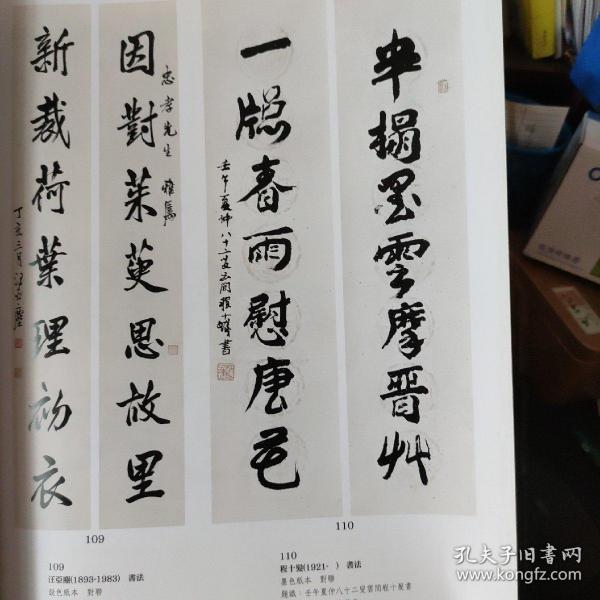 半榻墨雲摩晉艸
一牕春雨慰唐花
壬午夏仲八十二叟云間程十髮書
因對茱萸思故里
忠孝先生 雅屬
新裁荷葉理初衣
丁亥三月汪亞塵
109
110
109
汪亞塵(1893-1983) 書法
設色紙本 對聯
110
程十髮(1921- ) 書法
墨色紙本 對聯
題識：壬午夏仲八十二叟雲間程十髮書
孔夫子旧书网
www.kongfz.com